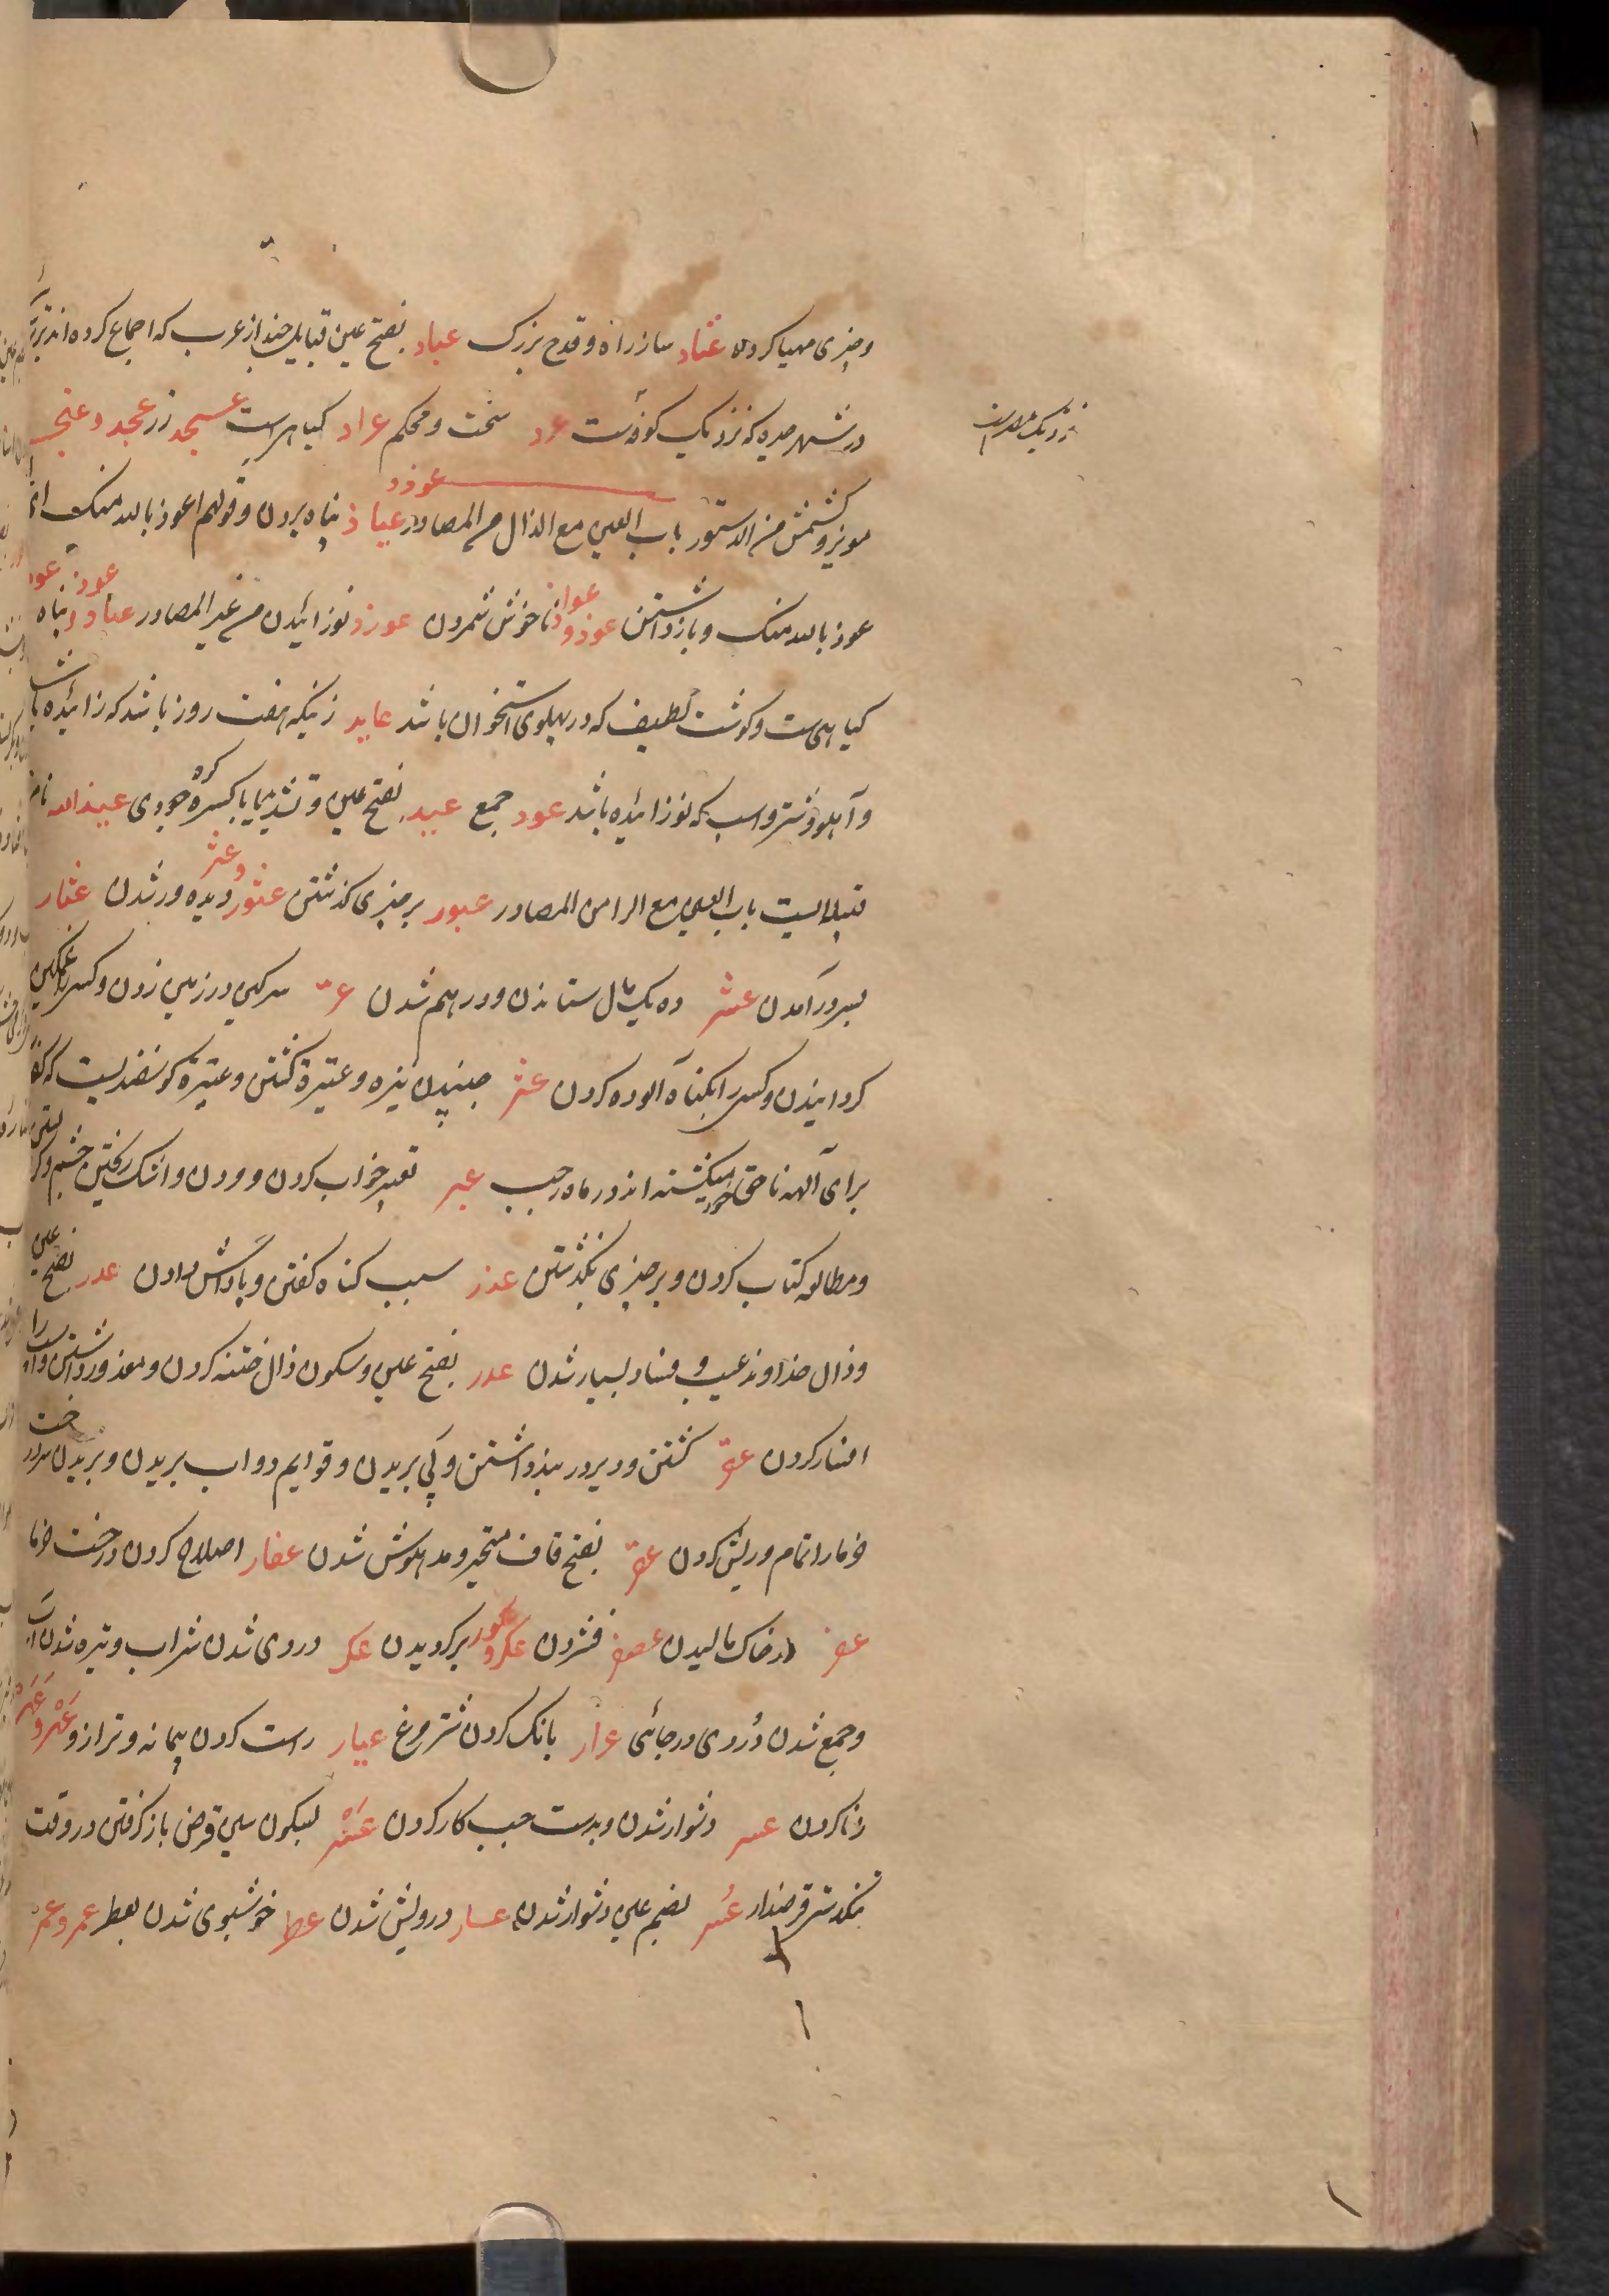 و چیزی مهیا کردن عتاد ساز راه و قدح بزرک عباد بفتح عین قبایل چند از عرب که اجماع کرده اند
در شهر حیره که نزدیک کوفه است عرد سخت و محکم عراد کیاهیست عسجد زر عجد و عنجد
نزدیک بصره است
مویز و کشمش من الدستور باب العین مع الذال من المصادر عیاذ عوذ پناه بردن و قولهم اعوذ بالله منک ای
عوذ بالله منک و باز داشتن عوذ و عواذ ناخوش شمردن عوزد نوزائیدن من غیر المصادر عیاذ و عوذ پناه
کیاهی است و کوشت لطیف که در پهلوی استخوان باشد عایذ زنیکه هفت روز باشد که زائیده باشد
و آهو و شتر و اسب که نوزائیده باشد عوذ جمع عیذ بفتح عین و تشدید یا با کسره جودی عیذالله نام
قبیله ایست باب العین مع الرا من المصادر عبور بر چیزی کذشتن عثور و عثر دیده ور شدن عثار
بسر درآمدن عشر ده یک مال ستاندن و درهم شدن عر سرکین در زمین زدن و کسی را غمکین
کردانیدن و کسی را بکناه آلوده کردن عتر جنبیدن نیزه و عتیرة کشتن و عتیرة کوسفندیست که
برای آلهه ناحق خود میکشته اند در ماه رجب عبر تعبیر خواب کردن و اشک ریختن چشم
و مطالعه کتاب کردن و بر چیزی بکذشتن عذر سبب کناه کفتن و پاداش دادن عدر بفتح عین
و ذال خداوند عیب و فساد بسیار شدن عدر بفتح عین و سکون ذال ختنه کردن و معذور داشتن
افسار کردن عقر کشتن و دیر در بند داشتن و پی بریدن و قوایم دواب بریدن و بریدن سر درخت
خرما را تمام و ریش کردن عقر بفتح قاف متحیر و مدهوش شدن عفار اصلاح کردن درخت خرما
عفر در خاک مالیدن عصر فشردن عکر و عکور برکردیدن عکر دردی شدن شراب و تیره شدن آب
و جمع شدن دُردی در جائی عرار بانک کردن شتر مرغ عیار راست کردن پیمانه و ترازو عَهْر و عَهَر
زنا کردن عسر دشوار شدن و بدست چپ کار کردن عَسْر بسکون سین قرض باز کرفتن در وقت
تنکدستی قرضدار عُسر بضم عین دشوار شدن عسار درویش شدن عطر خوشبوی شدن بعطر عمر و عمر